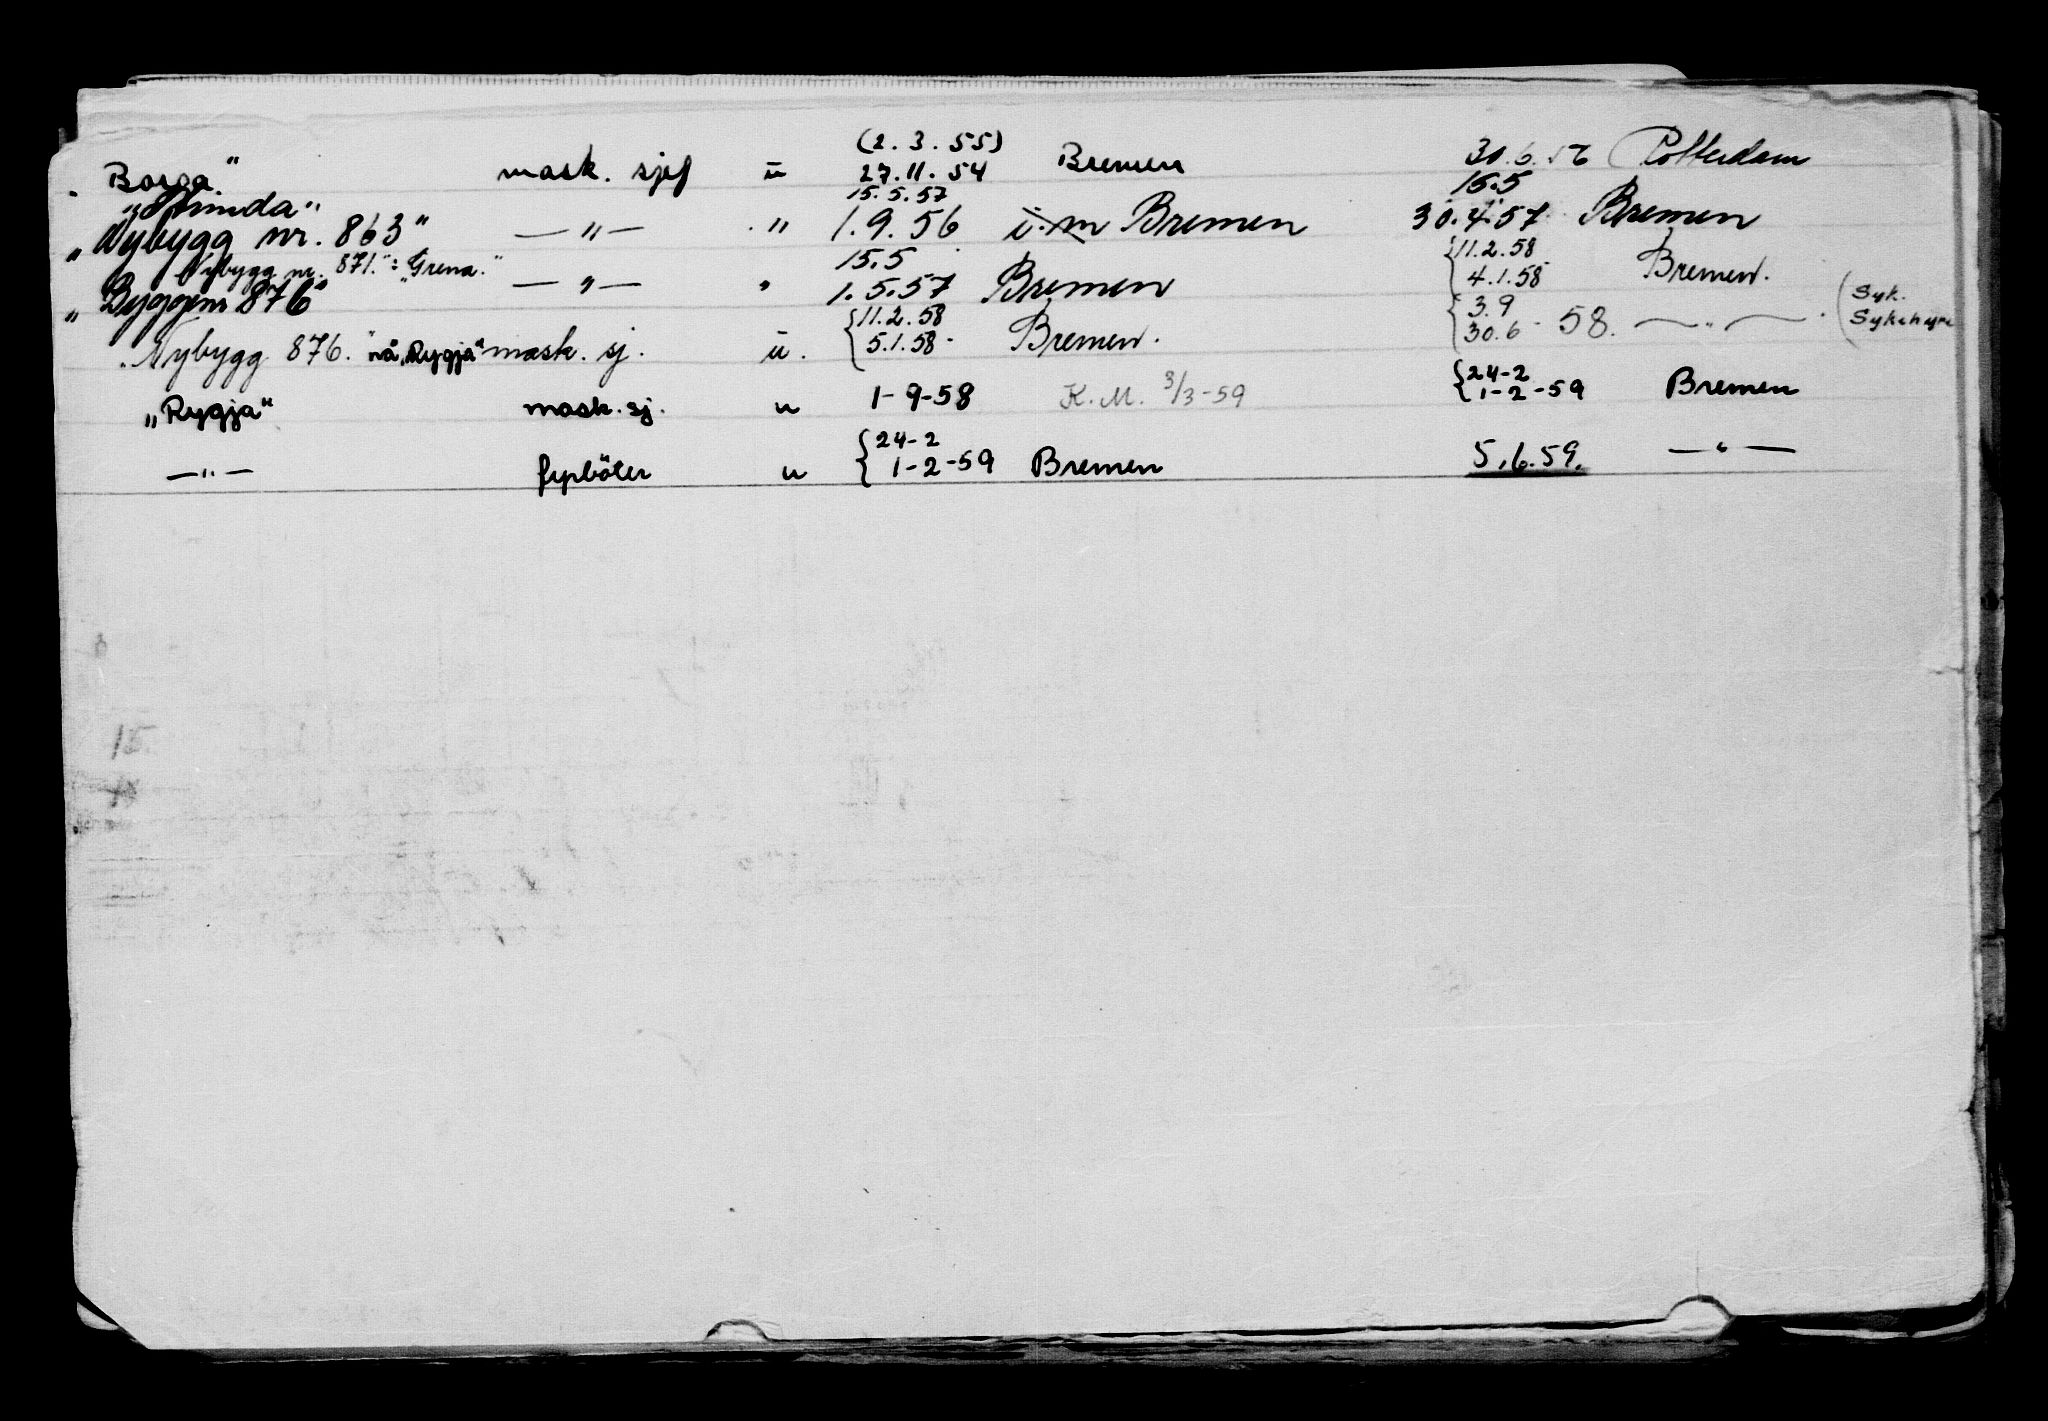 (2. 3. 55)
„ Borga." mask. sjef u 27.11.54 Bremen 30.6.56 Rotterdam
15.5.57 15.5
„Nybygg nr. 863" — " — " 1.9.56 i.m Bremen 30.4.57 Bremen
Nybygg nr. 871." : „Grena." 15.5 11.2.58
„Byggenr 876" — " — " 1.5.57 Bremen 4.1.58 Bremen.
11.2.58 3.9 (Syk.
Nybygg 876. "nå „Rygja" mask. sj. u. 5.1.58 Bremen. 30.6 - 58. — " — . Sykehyre
24-2
„Rygja" mask. sj. u 1-9-58 K.M. 3/3-59 1-2-59 Bremen
24-2
— " — fyrböter u 1-2-59 Bremen 5.6.59. — " —
15.